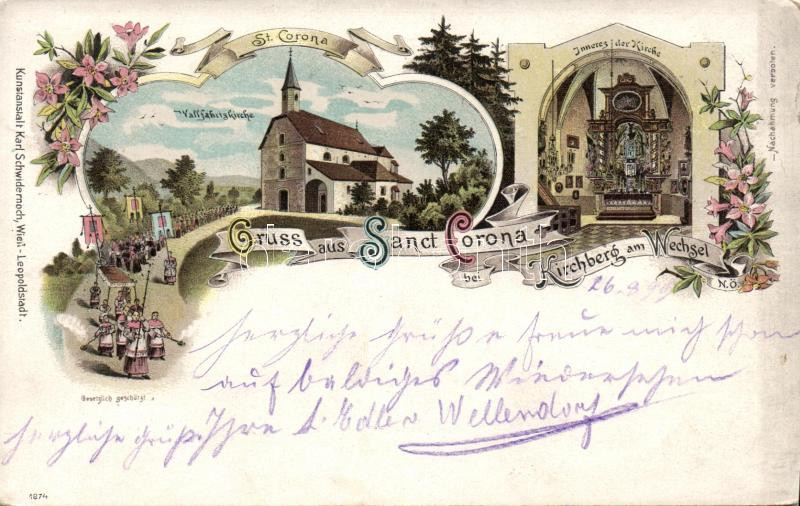 St. Corona
Wallfahrtskirche
Inneres der Kirche
Gruss aus Sanct Corona
bei Kirchberg am Wechsel
N.Ö.
Kunstanstalt Karl Schwidernoch, Wien - Leopoldstadt.
Nachahmung verboten.
26.8.99
herzliche Grüße freue mich schon
auf baldiges Wiedersehen
herzliche Grüße Ihre Edle v Wellendorf
Gesetzlich geschützt
1874